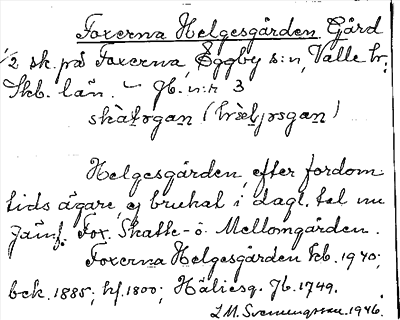 Foxerna Helgesgården Gård
1/2 sk. på Foxerna, Eggby s:n, Valle hr.
Skb. län. – Jb. n:r 3
Helgesgården, efter fordom
tids ägare, ej brukat i dagl. tal nu
Jämf. Fox. Skatte- o. Mellomgården.
Foxerna Helgesgården kb. 1940;
bek. 1885; hf. 1800; Häliesg. Jb. 1749.
L M. Svenungsson. 1946.